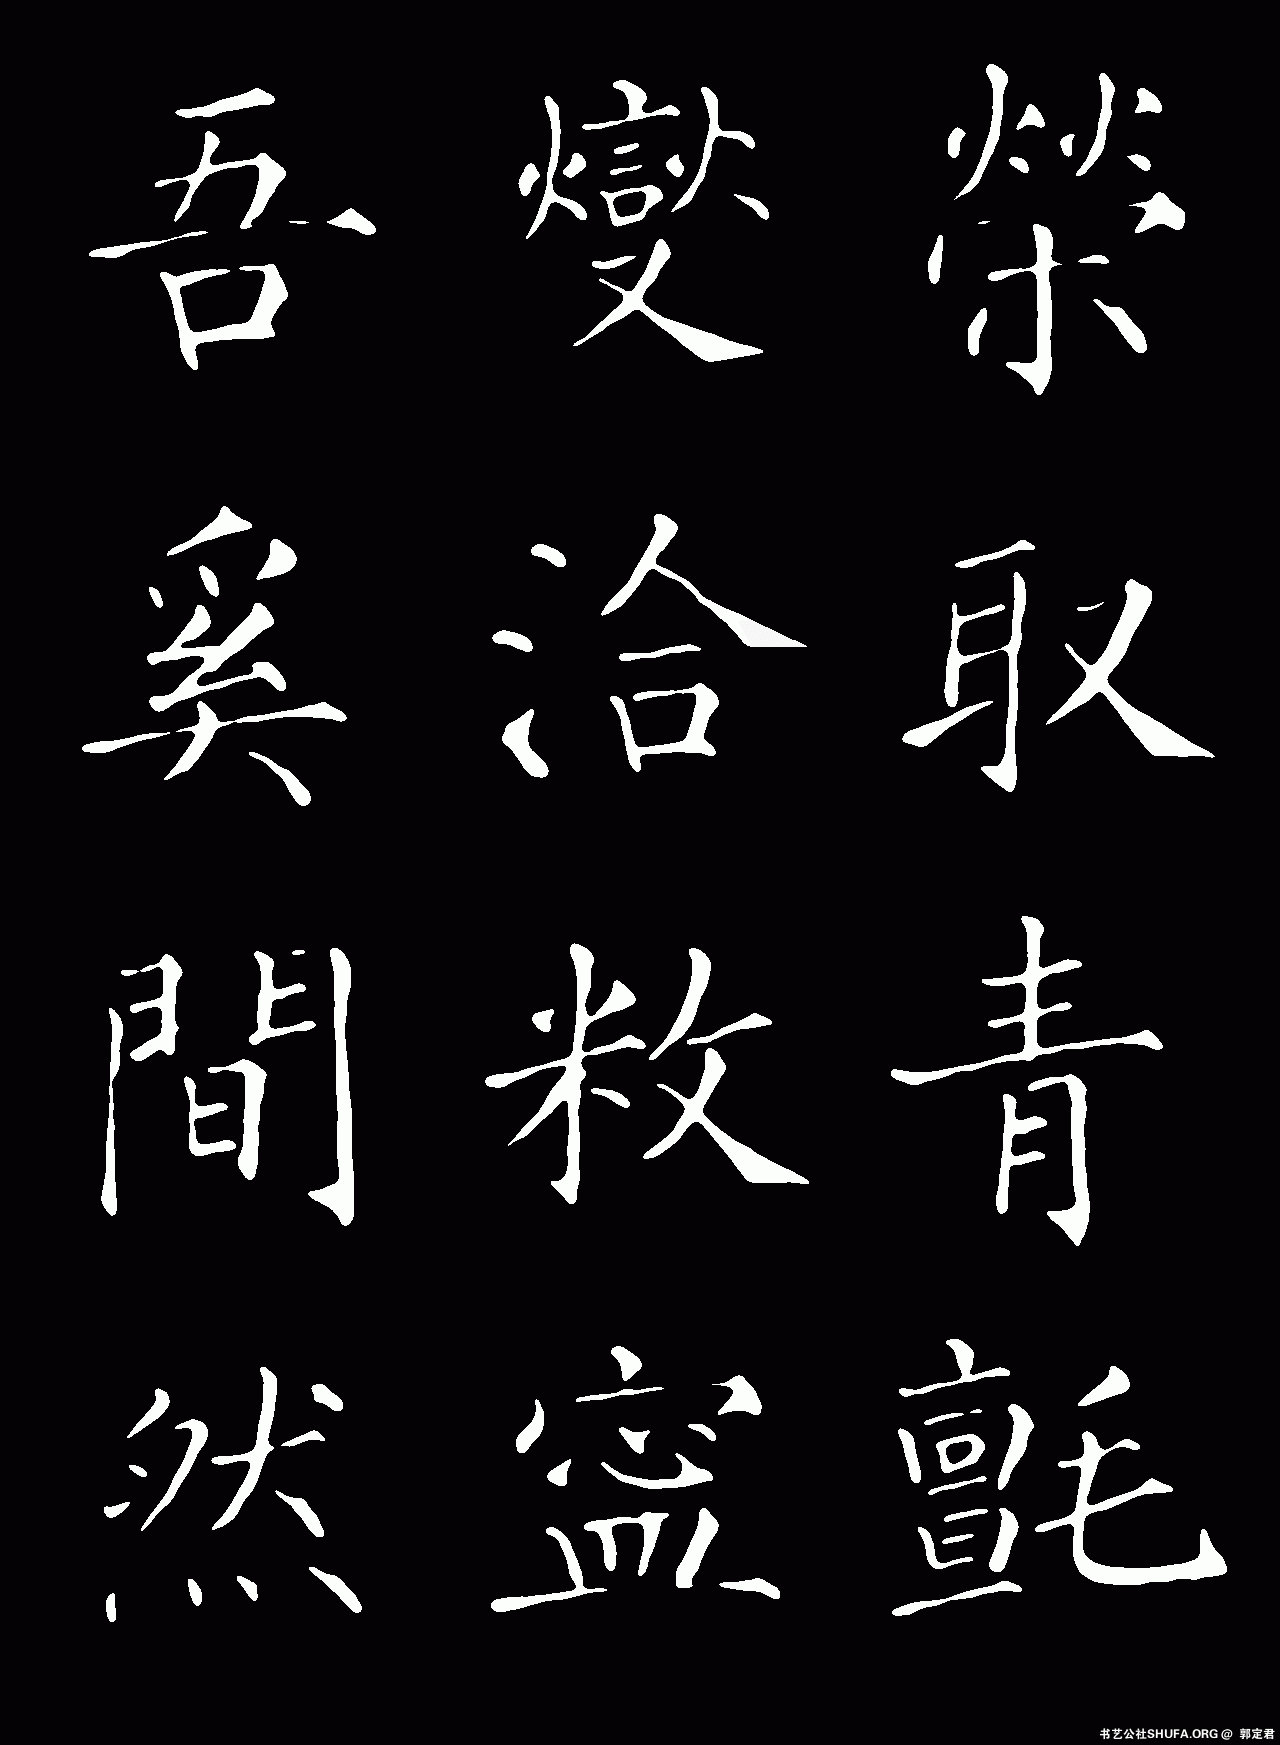 榮取青氈
燮洽敉寍
吾奚間然
书艺公社SHUFA.ORG @ 郭定君